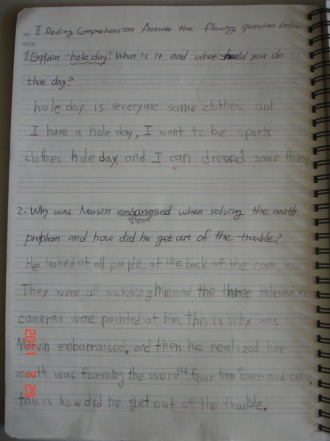 II. Reding Comprehension Answer the flowing question below
1. Explain 'hole day'. What is it and what should you do
that day?
hole day is everyone same clothes, and
I have a hole day, I want to be sports
clothes hole day and I can dressed same thing
2. Why was Marvin embarrassed when solving the math
problem and how did he get out of the trouble?
He looked at all people at the back of the room, and
They were all watching him and the three television
cameras were pointed at him, this is why was
Marvin embarrassed, and then he realized her
mouth was forming the word "four" over and over,
this is how did he get out of the trouble.